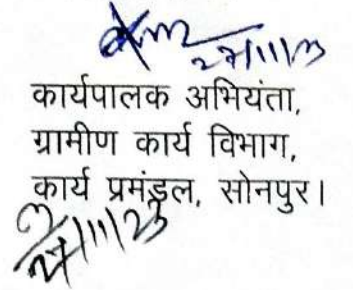 27/11/23
कार्यपालक अभियंता,
ग्रामीण कार्य विभाग,
कार्य प्रमंडल, सोनपुर।
27/11/23